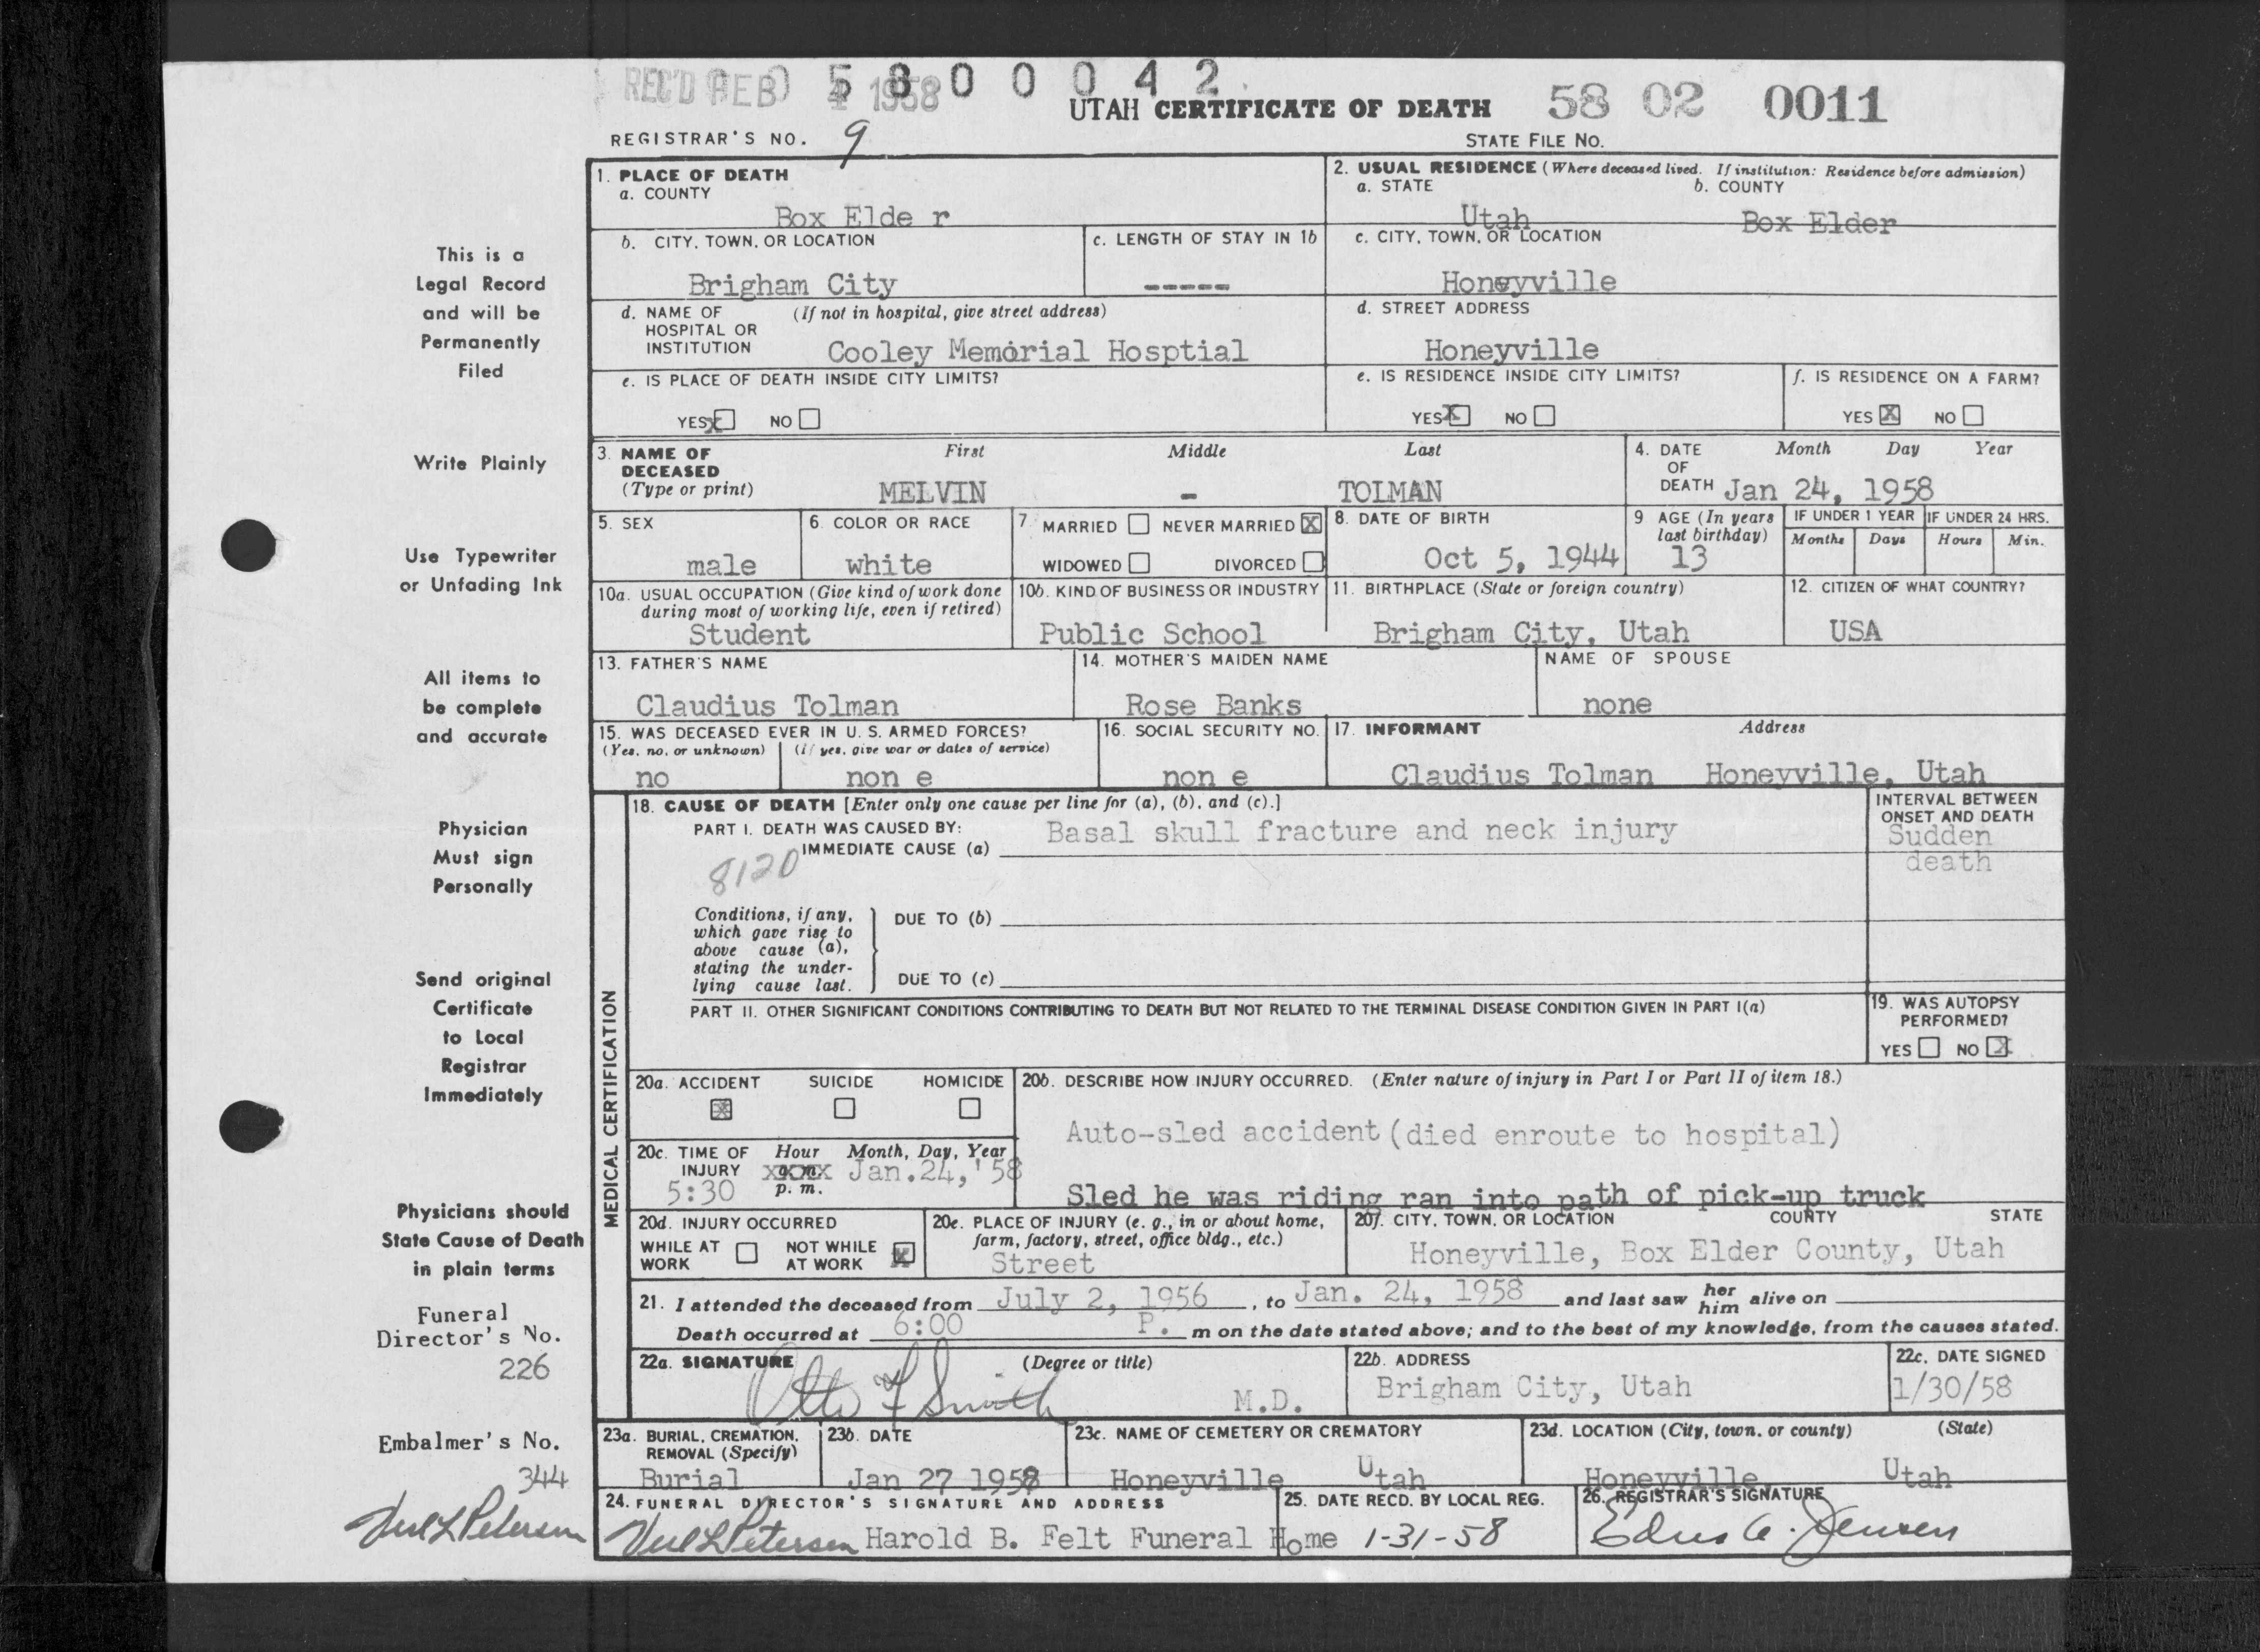 REC'D FEB 4 1958
5 8 0 0 0 4 2
UTAH CERTIFICATE OF DEATH 58 02 0011
REGISTRAR'S NO. 9 STATE FILE NO.
1. PLACE OF DEATH
a. COUNTY
Box Elde r
2. USUAL RESIDENCE (Where deceased lived. If institution: Residence before admission)
a. STATE b. COUNTY
Utah Box Elder
b. CITY, TOWN, OR LOCATION
Brigham City
c. LENGTH OF STAY IN 1b
-----
c. CITY, TOWN, OR LOCATION
Honeyville
d. NAME OF (If not in hospital, give street address)
HOSPITAL OR
INSTITUTION Cooley Memorial Hosptial
d. STREET ADDRESS
Honeyville
e. IS PLACE OF DEATH INSIDE CITY LIMITS?
YES X NO
e. IS RESIDENCE INSIDE CITY LIMITS?
YES X NO
f. IS RESIDENCE ON A FARM?
YES X NO
3. NAME OF First Middle Last
DECEASED
(Type or print) MELVIN - TOLMAN
4. DATE Month Day Year
OF
DEATH Jan 24, 1958
5. SEX
male
6. COLOR OR RACE
white
7. MARRIED NEVER MARRIED X
WIDOWED DIVORCED
8. DATE OF BIRTH
Oct 5, 1944
9 AGE (In years
last birthday)
13
IF UNDER 1 YEAR IF UNDER 24 HRS.
Months Days Hours Min.
10a. USUAL OCCUPATION (Give kind of work done
during most of working life, even if retired)
Student
10b. KIND OF BUSINESS OR INDUSTRY
Public School
11. BIRTHPLACE (State or foreign country)
Brigham City, Utah
12. CITIZEN OF WHAT COUNTRY?
USA
13. FATHER'S NAME
Claudius Tolman
14. MOTHER'S MAIDEN NAME
Rose Banks
NAME OF SPOUSE
none
15. WAS DECEASED EVER IN U. S. ARMED FORCES?
(Yes, no, or unknown) (If yes, give war or dates of service)
no non e
16. SOCIAL SECURITY NO.
non e
17. INFORMANT Address
Claudius Tolman Honeyville, Utah
MEDICAL CERTIFICATION
18. CAUSE OF DEATH [Enter only one cause per line for (a), (b), and (c).]
PART I. DEATH WAS CAUSED BY:
IMMEDIATE CAUSE (a) Basal skull fracture and neck injury
8120
INTERVAL BETWEEN
ONSET AND DEATH
Sudden
death
Conditions, if any,
which gave rise to
above cause (a),
stating the under-
lying cause last.
DUE TO (b)
DUE TO (c)
PART II. OTHER SIGNIFICANT CONDITIONS CONTRIBUTING TO DEATH BUT NOT RELATED TO THE TERMINAL DISEASE CONDITION GIVEN IN PART I(a)
19. WAS AUTOPSY
PERFORMED?
YES NO X
20a. ACCIDENT SUICIDE HOMICIDE
X
20b. DESCRIBE HOW INJURY OCCURRED. (Enter nature of injury in Part I or Part II of item 18.)
Auto-sled accident (died enroute to hospital)
Sled he was riding ran into path of pick-up truck
20c. TIME OF Hour Month, Day, Year
INJURY Jan.24,'58
5:30 p. m.
20d. INJURY OCCURRED
WHILE AT NOT WHILE X
WORK AT WORK
20e. PLACE OF INJURY (e. g., in or about home,
farm, factory, street, office bldg., etc.)
Street
20f. CITY, TOWN, OR LOCATION COUNTY STATE
Honeyville, Box Elder County, Utah
21. I attended the deceased from July 2, 1956, to Jan. 24, 1958 and last saw her him alive on
Death occurred at 6:00 P. m on the date stated above; and to the best of my knowledge, from the causes stated.
22a. SIGNATURE (Degree or title)
Otto F Smith M.D.
22b. ADDRESS
Brigham City, Utah
22c. DATE SIGNED
1/30/58
23a. BURIAL, CREMATION,
REMOVAL (Specify)
Burial
23b. DATE
Jan 27 1958
23c. NAME OF CEMETERY OR CREMATORY
Honeyville Utah
23d. LOCATION (City, town, or county) (State)
Honeyville Utah
24. FUNERAL DIRECTOR'S SIGNATURE AND ADDRESS
Petersen Harold B. Felt Funeral Home
25. DATE RECD. BY LOCAL REG.
1-31-58
26. REGISTRAR'S SIGNATURE
Jensen
This is a
Legal Record
and will be
Permanently
Filed
Write Plainly
Use Typewriter
or Unfading Ink
All items to
be complete
and accurate
Physician
Must sign
Personally
Send original
Certificate
to Local
Registrar
Immediately
Physicians should
State Cause of Death
in plain terms
Funeral
Director's No.
226
Embalmer's No.
344
Petersen